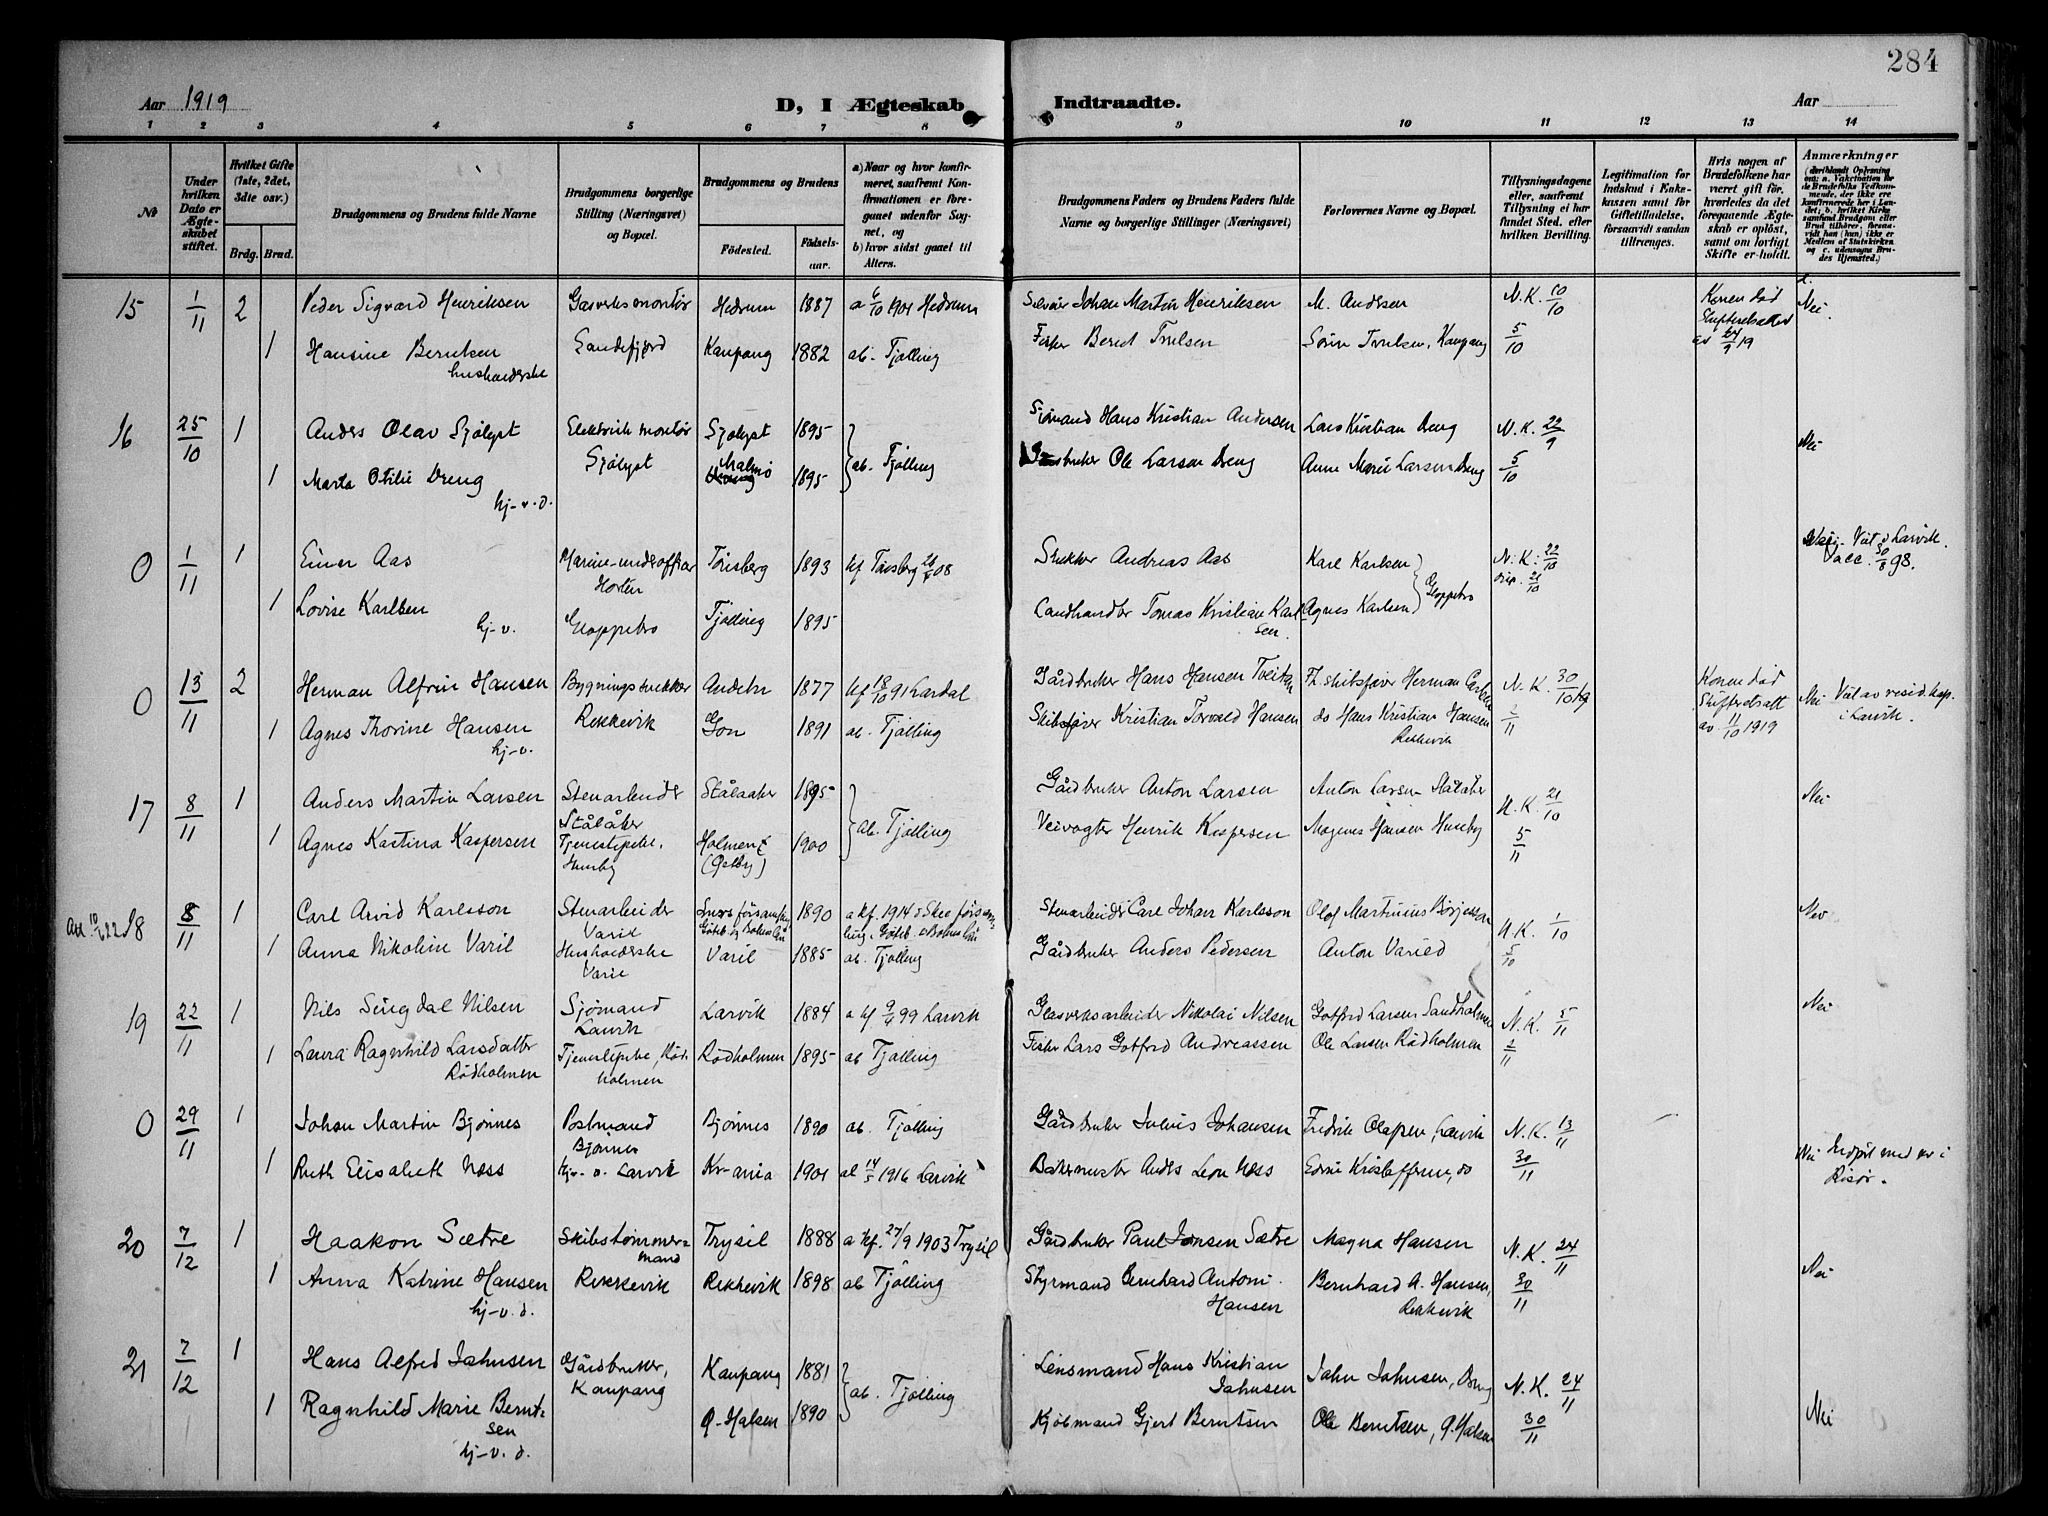 284
Aar 1919
D, I Ægteskab Indtraadte.
Aar
1 2 3 4 5 6 7 8 9 10 11 12 13 14
Nr
Under hvilken Dato er Ægteskabet stiftet.
Hvilket Gifte (1ste, 2det, 3die osv.)
Brdg. Brud.
Brudgommens og Brudens fulde Navne
Brudgommens borgerlige Stilling (Næringsvei) og Bopæl.
Brudgommens og Brudens
Fødested. Fødselsaar.
a) Naar og hvor konfirmeret, saafremt Konfirmationen er foregaaet udenfor Sognet, og
b) hvor sidst gaaet til Alters.
Brudgommens Faders og Brudens Faders fulde Navne og borgerlige Stillinger (Næringsvei)
Forlovernes Navne og Bopæl.
Tillysningsdagene eller, saafremt Tillysning ei har fundet Sted, efter hvilken Bevilling.
Legitimation for Indskud i Enkekassen samt for Giftetilladelse, forsaavidt saadan tiltrænges.
Hvis nogen af Brudefolkene har været gift før, hvorledes da det foregaaende Ægteskab er opløst, samt om lovligt Skifte er holdt.
Anmærkninger
15 1/11 2 Peder Sigvard Henriksen Gasverksmontør Hedrum 1887 a 6/10 1901 Hedrum Johan Martin Henriksen M. Andersen N.K. 10/10 Konen død Nei
1 Hansine Berntsen Sandefjord Kaupang 1882 ab. Tjølling Fisker Bernt Trulsen Sørin Trulsen, Kaupang 5/10 Skifteretsattest av 24/9 19
husholderske
16 25/10 1 Anders Olav Sjølyst Elektrisk montør Sjølyst 1895 Sjømand Hans Kristian Andersen Lars Kristian Dreng N.K. 22/9 Nei
1 Marta Otilie Dreng Sjølyst Malmø 1895 ab. Tjølling bruker Ole Larsen Dreng Anne Marie Larsen Dreng 5/10
hj-v.d.
0 1/11 1 Einar Aas Marine-underoffiser Tønsberg 1893 kf Tønsberg 08 Snekker Andreas Aas Karl Karlsen N.K. 22/10 Nei. Viet i Larvik.
Horten disp. 21/10 Vacc. 30/8 98.
1 Lovise Karlsen Gloppebro Tjølling 1895 Landhandler Tomas Kristian Karlsen Agnes Karlsen Gloppebro
hj-v.
0 13/11 2 Herman Alfrin Hansen Bygningssnekker Andebu 1877 kf 18/10 91 Lardal Gårdbruker Hans Hansen Tveiten Fh. skibsfører Herman Carlsen N.K. 30/10 19 Konen død Nei Viet av resid. kap. i Larvik.
1 Agnes Thorine Hansen Rekkevik Gon 1891 ab. Tjølling Skibsfører Kristian Torvald Hansen do Hans Kristian Hansen Rekkevik 2/11 Skifteretsatt av 11/10 1919
hj-v.
17 8/11 1 Anders Martin Larsen Stenarbeider Stålåker Stålaaker 1895 Gårdbruker Anton Larsen Anton Larsen Stålåker N.K. 21/10 Nei
1 Agnes Kastina Kaspersen Tjenestepike, Huseby Holmen (Østby) 1900 ab. Tjølling Veivogter Henrik Kaspersen Magnus Hansen Huseby 5/11
18 8/11 1 Carl Arvid Karlsson Stenarbeider Varil 1890 a kf. 1914 i Skee førsamling, Göteb. o Bohuslän Stenarbeider Carl Johan Karlsson Olof Martinius Börjesson N.K. 1/10 Nei
1 Anna Nikoline Varil Husholderske Varil Varil 1885 ab. Tjølling Gårdbruker Anders Pedersen Anton Varild 5/10
19 22/11 1 Nils Singdal Nilsen Sjømand Larvik Larvik 1884 a kf 9/4 99 Larvik Glasverksarbeider Nikolai Nilsen Gotfred Larsen Sandholmen N.K. 5/11 Nei
1 Laura Ragnhild Larsdatter Rødholmen Tjenestepike, Rødholmen Rødholmen 1895 ab Tjølling Fisker Lars Gotfred Andreassen Ole Larsen Rødholmen 2/11
0 29/11 1 Johan Martin Bjønnes Postmand Bjønnes Bjønnes 1890 ab. Tjølling Gårdbruker Julius Johansen Fredrik Olafsen, Larvik N.K. 13/11
1 Ruth Elisabeth Næss hj-v. Larvik Kr-ania 1901 al 14/5 1916 Larvik Bakermester Anders Leon Næss Edvin Kristoffersen, do 30/11 Nei Indpst med nr i Risør.
20 7/12 1 Haakon Sætre Skibstømmermand Trysil 1888 a kf. 27/9 1903 Trysil Gårdbruker Paul Jonsen Sætre Magna Hansen N.K. 24/11 Nei
1 Anna Katrine Hansen Rekkevik Rekkevik 1898 ab Tjølling Styrmand Bernhard Antoni Hansen Bernhard A. Hansen, Rekkevik 30/11
hj-v.d.
21 7/12 1 Hans Alfred Jahnsen Gårdbruker, Kaupang Kaupang 1881 Lensmand Hans Kristian Jahnsen Jahn Jahnsen, Dreng N.K. 24/11 Nei
1 Ragnhild Marie Berntsen Ø-Halsen 1890 ab. Tjølling Kjøbmand Gjert Berntsen Ole Berntsen, Ø.Halsen 30/11
hj-v.d.